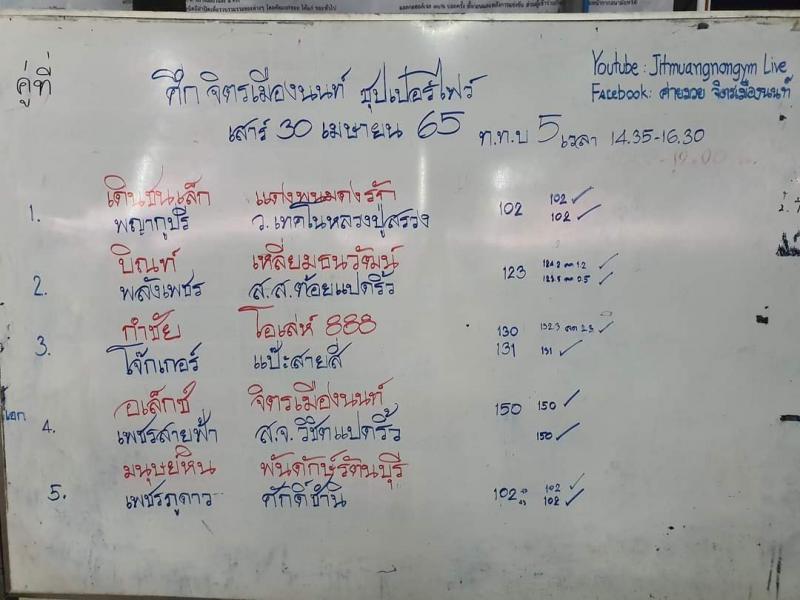 คู่ที่
ศึก จิตรเมืองนนท์ ซุปเปอร์ไฟว์
Youtube : Jitmuangnongym Live
Facebook : ค่ายมวย จิตรเมืองนนท์
เสาร์ 30 เมษายน 65 ท.ท.บ 5 เวลา 14.35-16.30
1. เดินชนเล็ก แดงพนมดงรัก 102 ✓
พญากูปรี ว.เทคโนหลวงปู่สรวง 102 102 ✓
2. บิณฑ์ เหลี่ยมธนวัฒน์ 123 ✓
พลังเพชร ส.ส.ต้อยแปดริ้ว ✓
3. กำชัย โอเล่ห์ 888 130 132.3 ลด 2.3 ✓
โจ๊กเกอร์ แป๊ะสายสี่ 131 131 ✓
เอก 4. อเล็กซ์ จิตรเมืองนนท์ 150 150 ✓
เพชรสายฟ้า ส.จ.วิชิตแปดริ้ว 150 ✓
5. มนุษย์หิน พันดักษ์รัตนบุรี 102 102 ✓
เพชรภูดาว ศักดิ์ชานิ 102 ✓